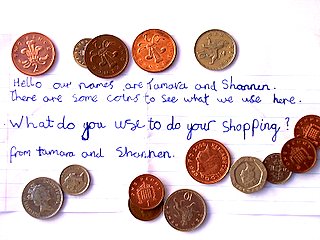 Hello our names are Tamara and Shannen.
There are some coins to see what we use here.
. What do you use to do your shopping?
from tamara and Shannen.